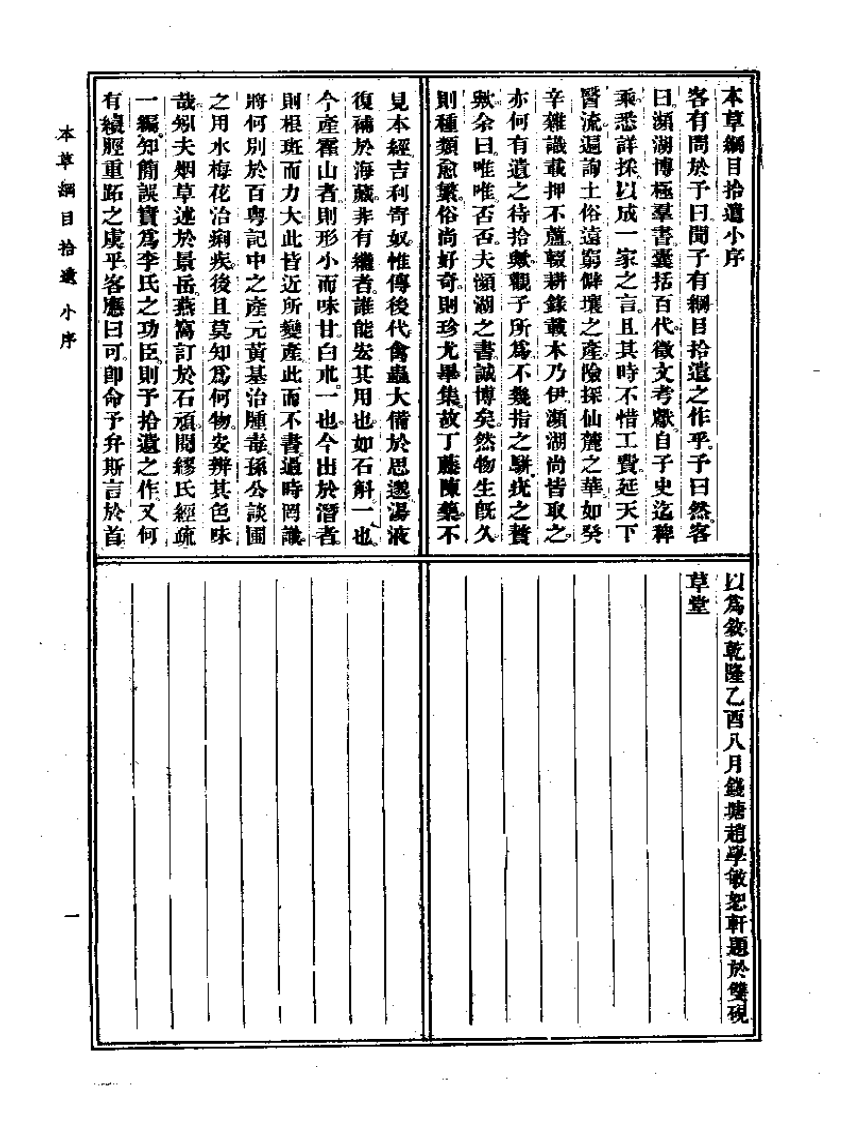 本草綱目拾遺小序
客有問於予曰聞子有綱目拾遺之作乎予曰然客
曰瀕湖博極羣書囊括百代徵文考獻自子史迄稗
乘悉詳採以成一家之言且其時不惜工費延天下
醫流遍詢土俗遠窮僻壤之產險探仙麓之華如癸
辛雜識載押不蘆輟耕錄載木乃伊瀕湖尚皆取之
亦何有遺之待拾歟觀子所爲不幾指之駢疣之贅
歟余曰唯唯否否夫瀕湖之書誠博矣然物生旣久
則種類愈繁俗尚好奇則珍尤畢集故丁藤陳藥不
見本經吉利寄奴惟傳後代禽蟲大備於思邈湯液
復補於海藏非有繼者誰能宏其用也如石斛一也
今產霍山者則形小而味甘白朮一也今出於潛者
則根斑而力大此皆近所變產此而不書過時罔識
將何別於百粤記中之產元黃基治腫毒孫公談圃
之用水梅花治痢疾後且莫知爲何物安辨其色味
哉矧夫烟草述於景岳燕窩訂於石頑閱繆氏經疏
一編知簡誤實爲李氏之功臣則予拾遺之作又何
有續脛重跖之虞乎客應曰可卽命予弁斯言於首
以爲敘乾隆乙酉八月錢塘趙學敏恕軒題於雙硯
草堂
本草綱目拾遺 小序
一